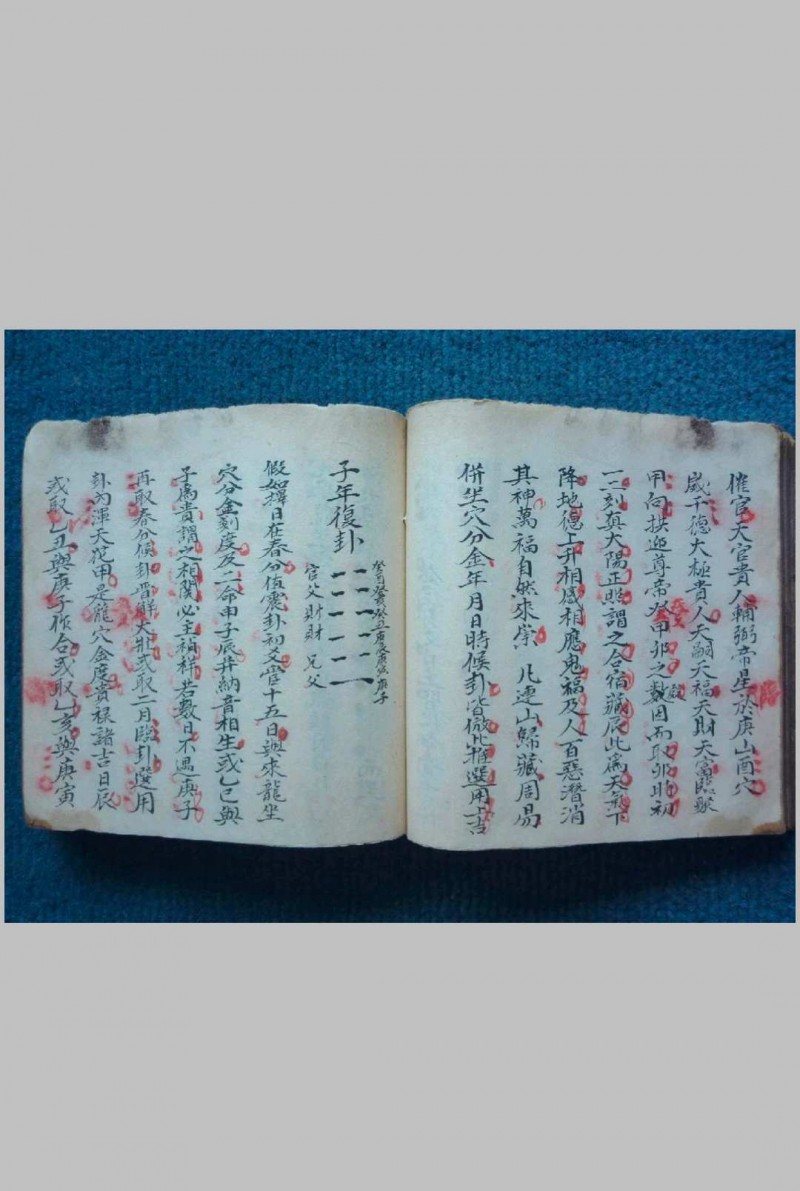 催官天官貴人輔弼帝星於庚山酉穴
歲干德大極貴人天嗣天福天財天富臨聚
甲向拱迎尊帝癸甲卯之數因而取卯時初
一二刻真太陽正照謂之合宿藏辰此為天氣下
降地德上升相感相應鬼福及人百惡潛消
其神萬福自然來崇凡連山歸藏周易
併坐穴分金年月日時候卦皆倣此推選用上吉
子年復卦
癸酉癸亥癸丑庚辰庚寅庚子
官父財財兄父
假如擇日在春分值震卦初爻管十五日與來龍坐
穴分金刻度及二命申子辰并納音相生或乙巳與
子為貴謂之相關必主禎祥若數日不遇庚子
再取春分候卦晋解大壯或取二月臨卦選用
卦內渾天花甲是龍穴金度貴祿諸吉日辰
或取乙丑與庚子作合或取乙亥與庚寅